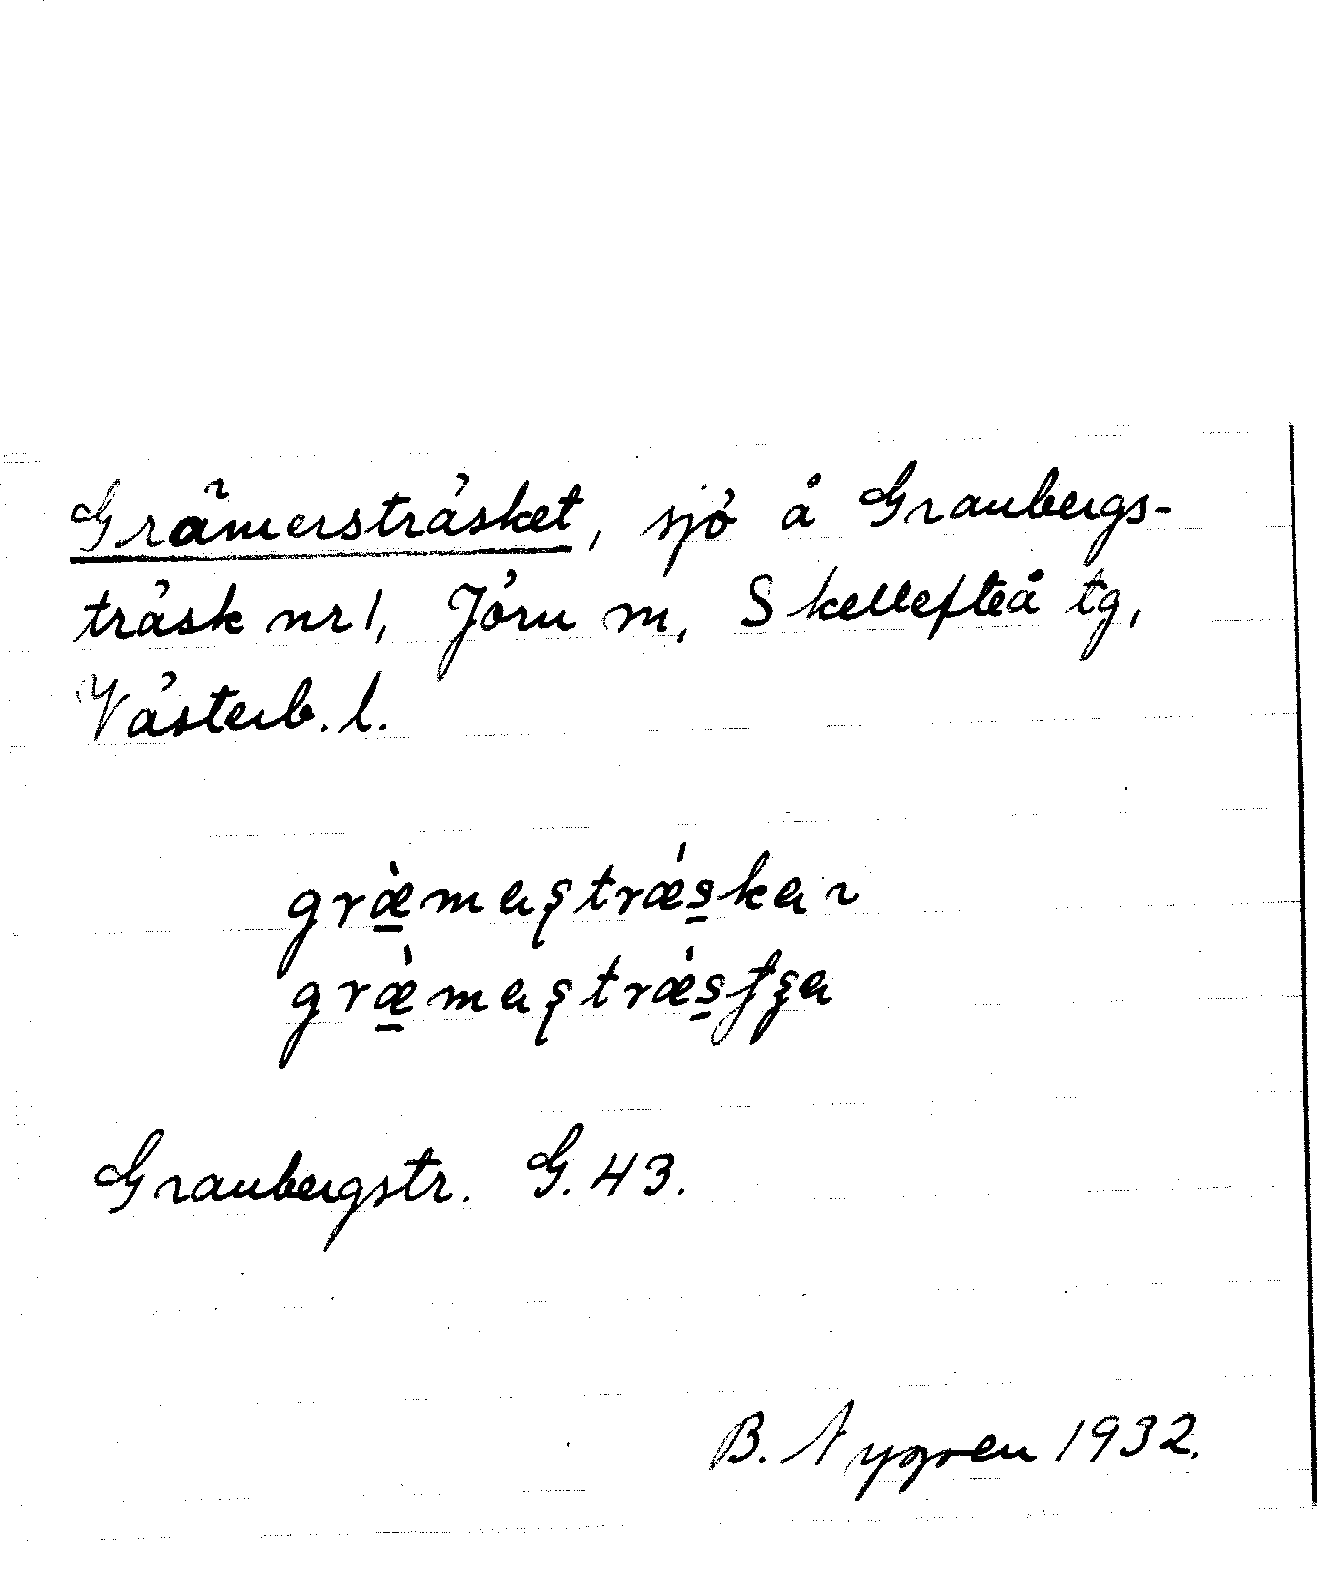 Grämersträsket, sjö å Granbergs-
träsk nr 1, Jörn sn, Skellefteå tg,
Västerb. l.
græ̀maʂtrǽskan
græ̀maʂtrǽsʄʂa
Granbergstr. G. 43.
B. Nygren 1932.